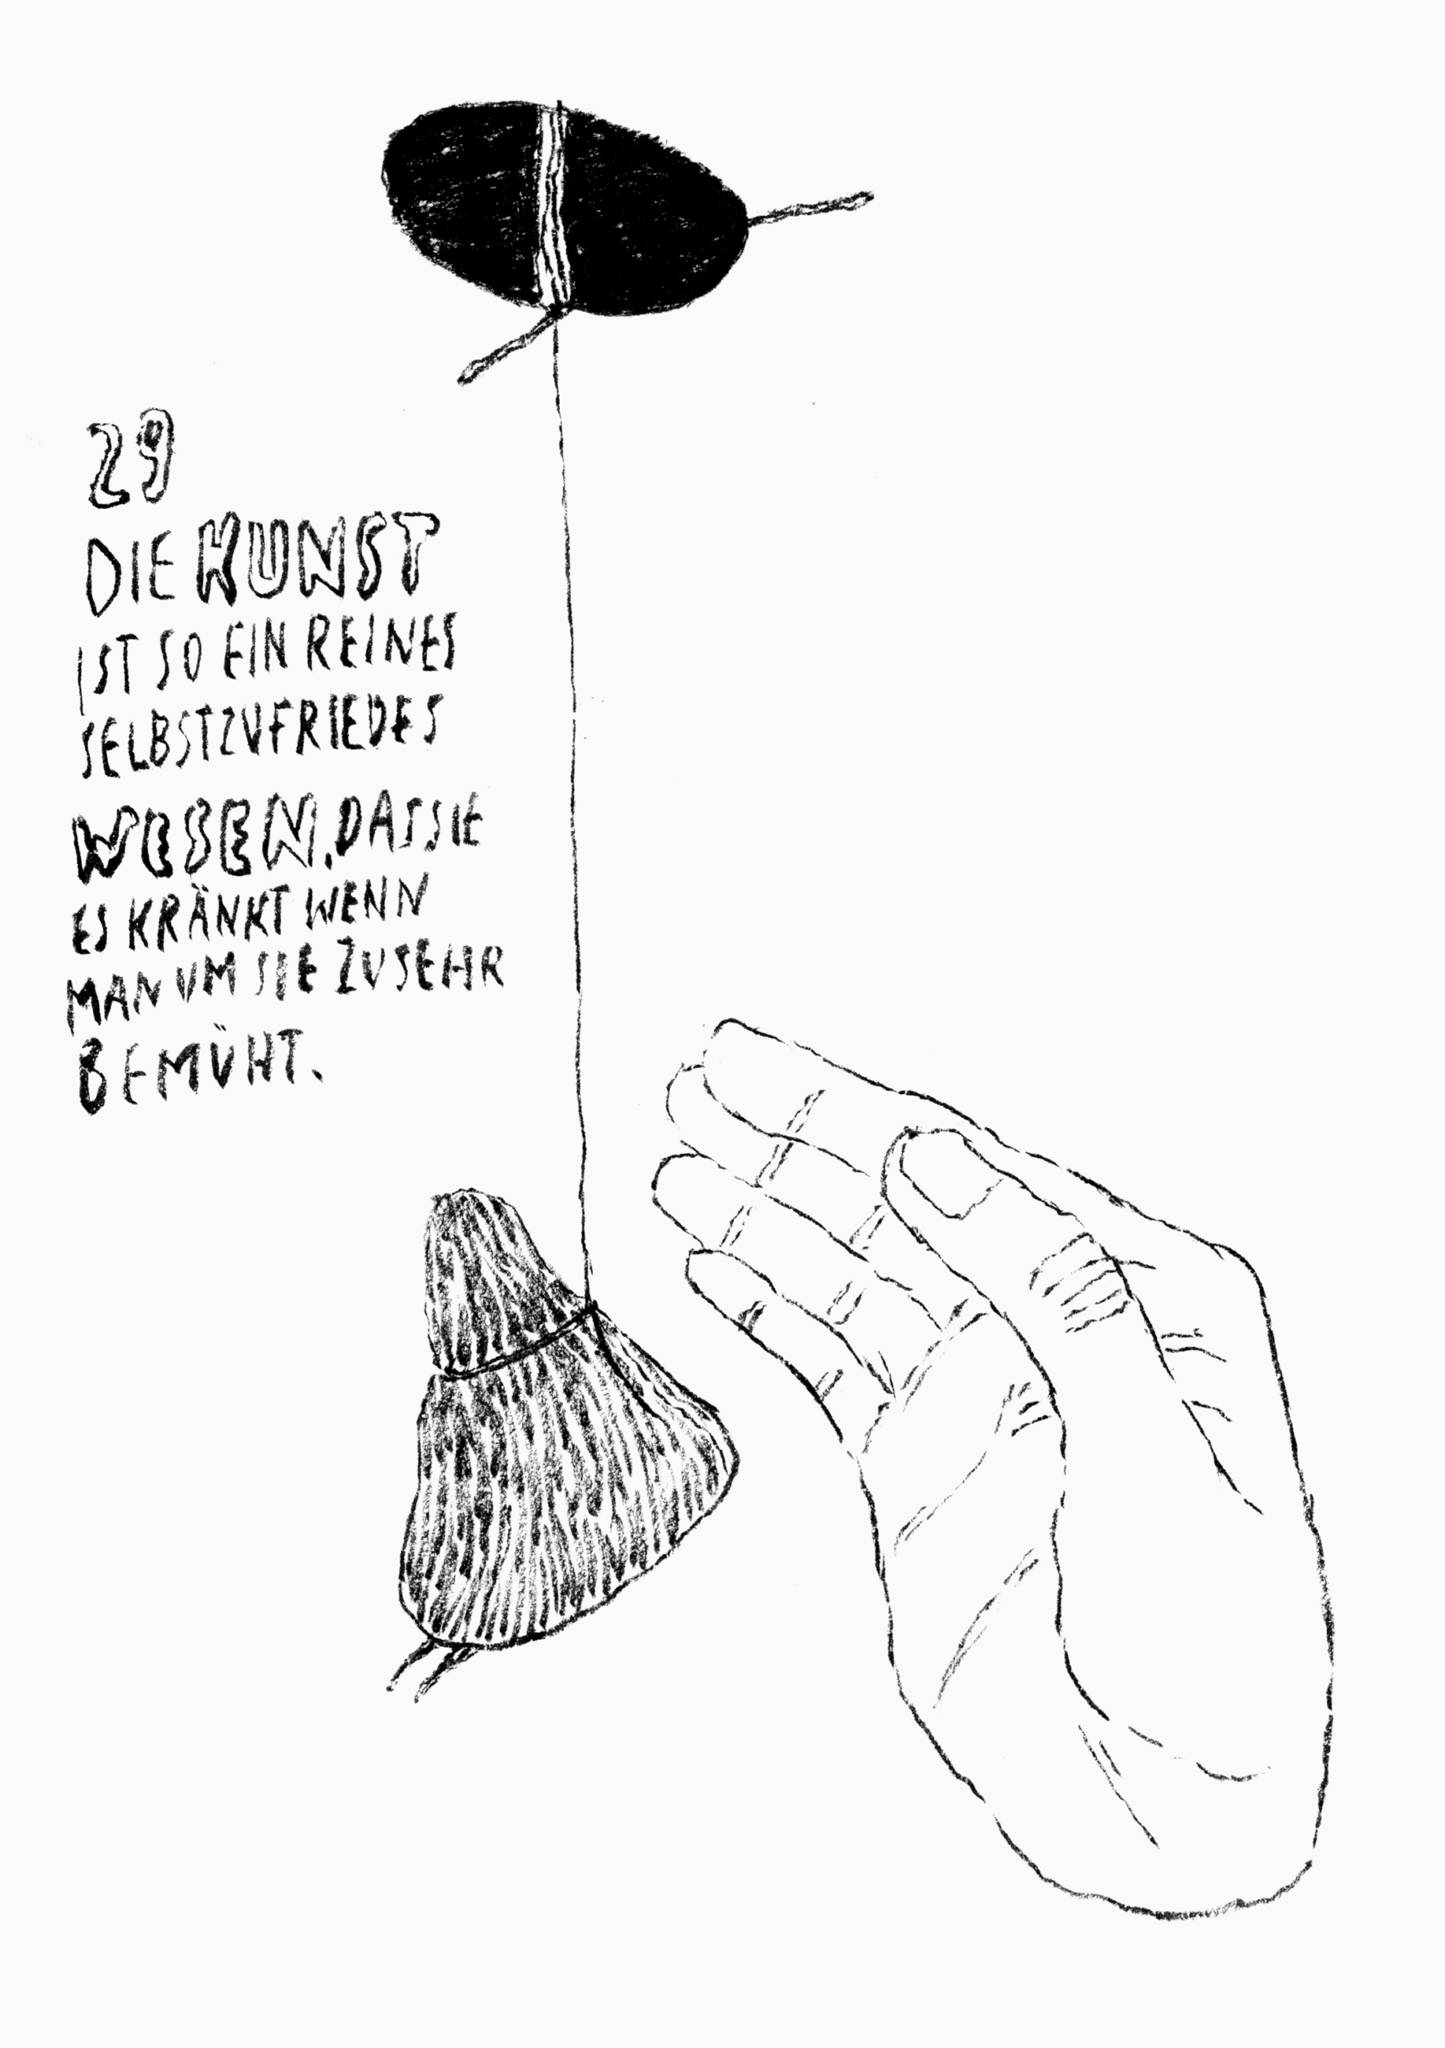 29
DIE KUNST
IST SO EIN REINES
SELBSTZUFRIEDES
WESEN, DASSIE
ES KRÄNKT WENN
MAN UM SIE ZU SEHR
BEMÜHT.